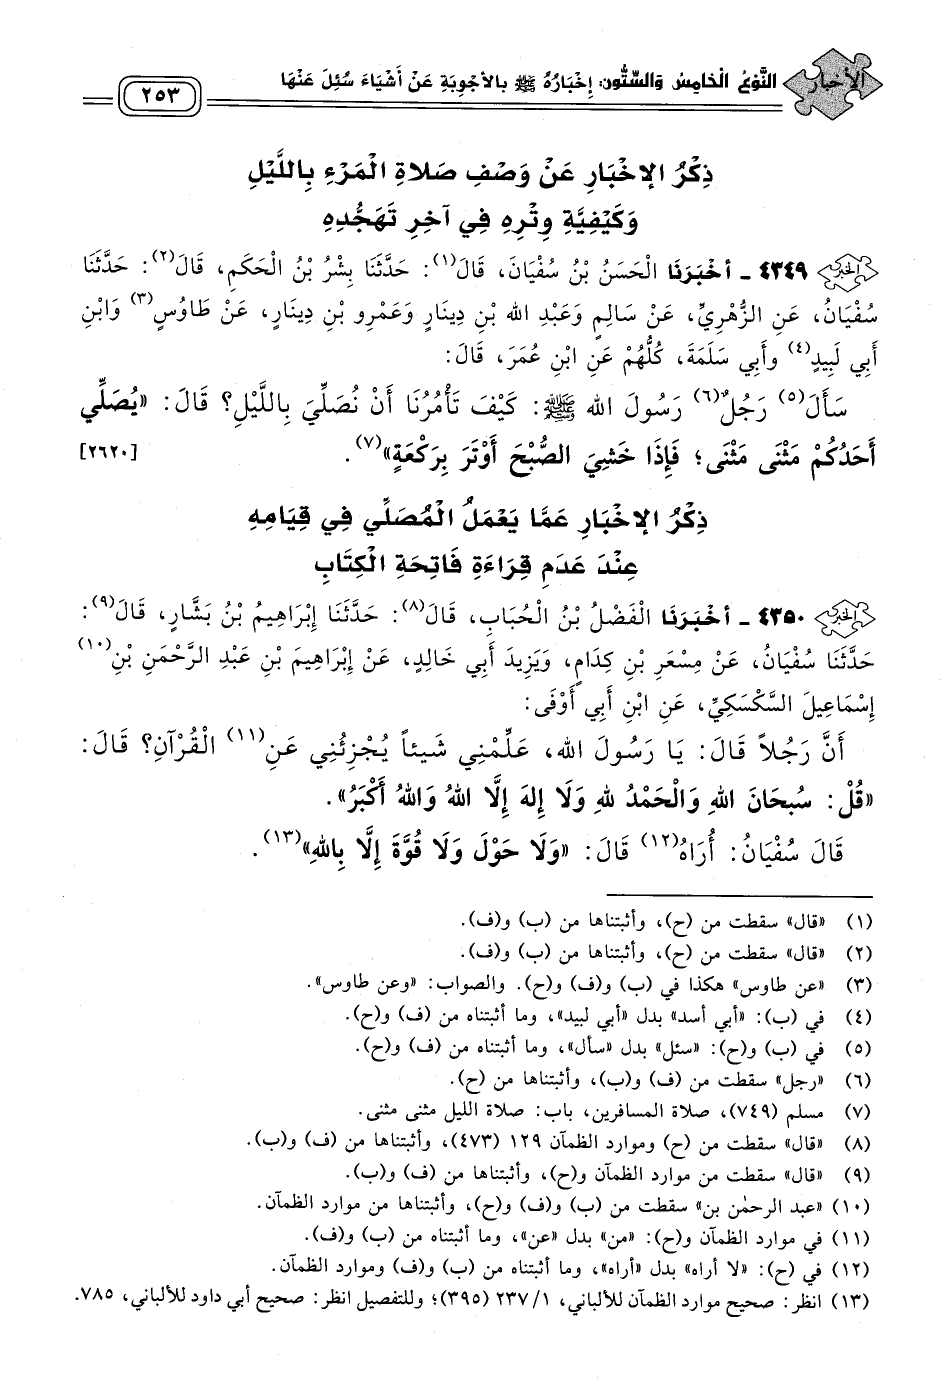 الأخبار
النَّوْعُ الْخَامِسُ وَالسِّتُّونَ: إِخْبَارُهُ ﷺ بِالأَجْوِبَةِ عَنْ أَشْيَاءَ سُئِلَ عَنْهَا
٢٥٣
ذِكْرُ الإِخْبَارِ عَنْ وَصْفِ صَلاةِ الْمَرْءِ بِاللَّيْلِ
وَكَيْفِيَّةِ وِتْرِهِ فِي آخِرِ تَهَجُّدِهِ
٤٣٤٩ - أَخْبَرَنَا الْحَسَنُ بْنُ سُفْيَانَ، قَالَ(١): حَدَّثَنَا بِشْرُ بْنُ الْحَكَمِ، قَالَ(٢): حَدَّثَنَا
سُفْيَانُ، عَنِ الزُّهْرِيِّ، عَنْ سَالِمٍ وَعَبْدِ الله بْنِ دِينَارٍ وَعَمْرِو بْنِ دِينَارٍ، عَنْ طَاوُسٍ(٣) وَابْنِ
أَبِي لَبِيدٍ(٤) وأَبِي سَلَمَةَ، كُلُّهُمْ عَنِ ابْنِ عُمَرَ، قَالَ:
سَأَلَ(٥) رَجُلٌ(٦) رَسُولَ الله ﷺ: كَيْفَ تَأْمُرُنَا أَنْ نُصَلِّيَ بِاللَّيْلِ؟ قَالَ: «يُصَلِّي
أَحَدُكُمْ مَثْنَى مَثْنَى؛ فَإِذَا خَشِيَ الصُّبْحَ أَوْتَرَ بِرَكْعَةٍ»(٧). [٢٦٢٠]
ذِكْرُ الإِخْبَارِ عَمَّا يَعْمَلُ الْمُصَلِّي فِي قِيَامِهِ
عِنْدَ عَدَمِ قِرَاءَةِ فَاتِحَةِ الْكِتَابِ
٤٣٥٠ - أَخْبَرَنَا الْفَضْلُ بْنُ الْحُبَابِ، قَالَ(٨): حَدَّثَنَا إِبْرَاهِيمُ بْنُ بَشَّارٍ، قَالَ(٩):
حَدَّثَنَا سُفْيَانُ، عَنْ مِسْعَرِ بْنِ كِدَامٍ، وَيَزِيدَ أَبِي خَالِدٍ، عَنْ إِبْرَاهِيمَ بْنِ عَبْدِ الرَّحْمَنِ بْنِ(١٠)
إِسْمَاعِيلَ السَّكْسَكِيِّ، عَنِ ابْنِ أَبِي أَوْفَى:
أَنَّ رَجُلاً قَالَ: يَا رَسُولَ الله، عَلِّمْنِي شَيْئاً يُجْزِئُنِي عَنِ(١١) الْقُرْآنِ؟ قَالَ:
«قُلْ: سُبحَانَ اللهِ وَالْحَمْدُ للهِ وَلَا إِلهَ إِلَّا اللهُ وَاللهُ أَكْبَرُ».
قَالَ سُفْيَانُ: أُرَاهُ(١٢) قَالَ: «وَلَا حَوْلَ وَلَا قُوَّةَ إِلَّا بِاللهِ»(١٣).
(١) «قال» سقطت من (ح)، وأثبتناها من (ب) و(ف).
(٢) «قال» سقطت من (ح)، وأثبتناها من (ب) و(ف).
(٣) «عن طاوس» هكذا في (ب) و(ف) و(ح). والصواب: «وعن طاوس».
(٤) في (ب): «أبي أسد» بدل «أبي لبيد»، وما أثبتناه من (ف) و(ح).
(٥) في (ب) و(ح): «سئل» بدل «سأل»، وما أثبتناه من (ف) و(ح).
(٦) «رجل» سقطت من (ف) و(ب)، وأثبتناها من (ح).
(٧) مسلم (٧٤٩)، صلاة المسافرين، باب: صلاة الليل مثنى مثنى.
(٨) «قال» سقطت من (ح) وموارد الظمآن ١٢٩ (٤٧٣)، وأثبتناها من (ف) و(ب).
(٩) «قال» سقطت من موارد الظمآن و(ح)، وأثبتناها من (ف) و(ب).
(١٠) «عبد الرحمٰن بن» سقطت من (ب) و(ف) و(ح)، وأثبتناها من موارد الظمآن.
(١١) في موارد الظمآن و(ح): «من» بدل «عن»، وما أثبتناه من (ب) و(ف).
(١٢) في (ح): «لا أراه» بدل «أراه»، وما أثبتناه من (ب) و(ف) وموارد الظمآن.
(١٣) انظر: صحيح موارد الظمآن للألباني، ١/ ٢٣٧ (٣٩٥)؛ وللتفصيل انظر: صحيح أبي داود للألباني، ٧٨٥.